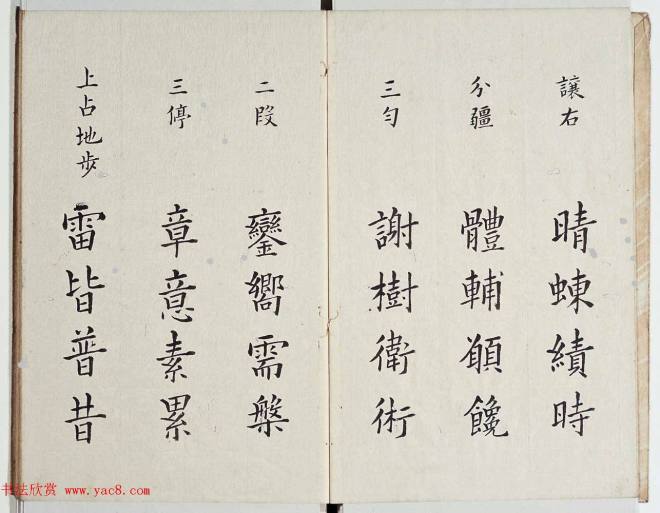 讓右
晴蝀績時
分疆
體輔願饞
三勻
謝樹衛術
二段
鑾嚮需槃
三停
章意素累
上占地步
雷皆普昔
书法欣赏 www.yac8.com